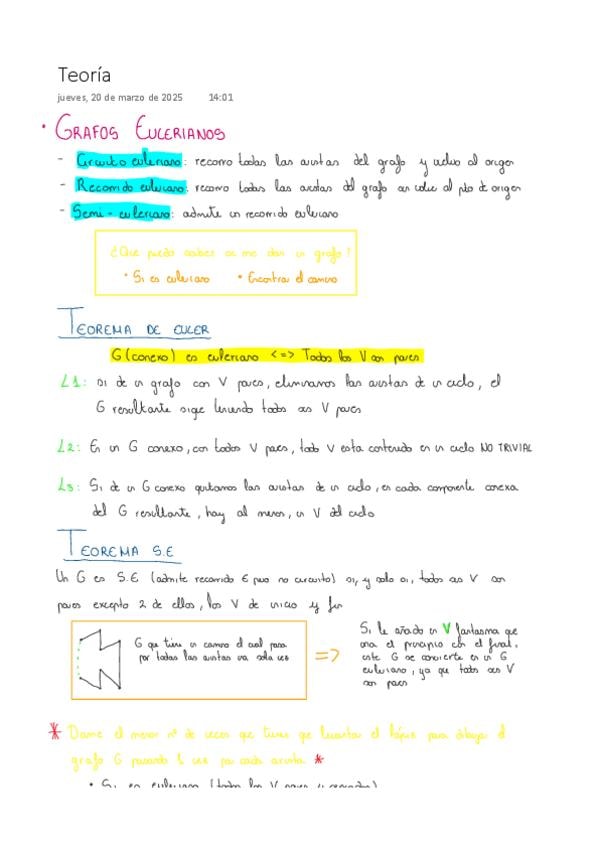 Teoría
jueves, 20 de marzo de 2025 14:01
• GRAFOS EULERIANOS
- Circuito euleriano: recorro todas las aristas del grafo y vuelvo al origen
- Recorrido euleriano: recorro todas las aristas del grafo sin volver al pto de origen
- Semi-euleriano: admite un recorrido euleriano
¿Que puedo saber si me dan un grafo?
• Si es euleriano • Encontrar el camino
TEOREMA DE EULER
G(conexo) es euleriano <=> Todos los V son pares
L1: si de un grafo con V pares, eliminamos las aristas de un ciclo, el
G resultante sigue teniendo todos sus V pares
L2: En un G conexo, con todos V pares, todo V esta contenido en un ciclo NO TRIVIAL
L3: Si de un G conexo quitamos las aristas de un ciclo, en cada componente conexa
del G resultante, hay al menos, un V del ciclo
TEOREMA S.E
Un G es S.E (admite recorrido E pero no circuito) si, y solo si, todos sus V son
pares excepto 2 de ellos, los V de inicio y fin
G que tiene un camino el cual pasa
por todas las aristas una sola vez
=>
Si le añado un V fantasma que
una el principio con el final,
este G se convierte en un G
euleriano, ya que todos sus V
son pares
* Dame el menor nº de veces que tienes que levantar el lápiz para dibujar el
grafo G pasando 1 vez por cada arista *
• Si es euleriano (todos los V pares